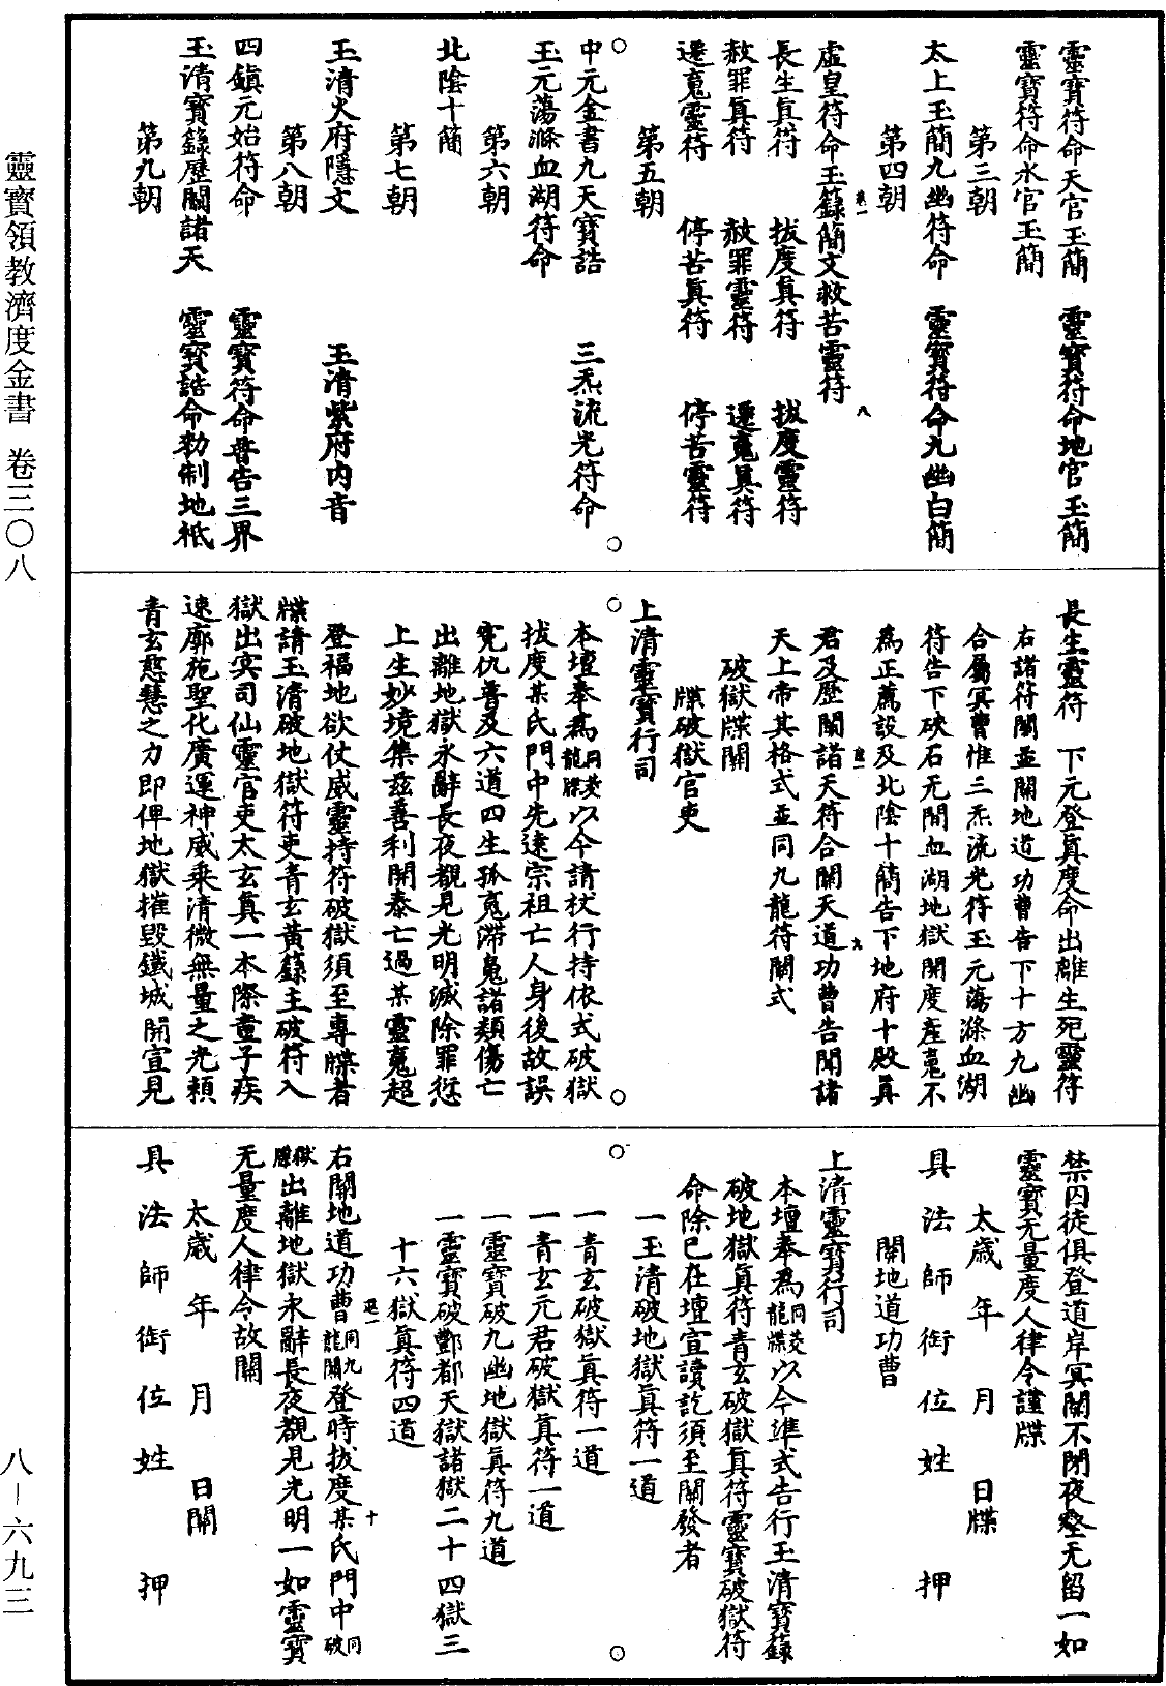 靈寶符命天官玉簡　靈寶符命地官玉簡
靈寶符命水官玉簡
第三朝
太上玉簡九幽符命　靈寶符命九幽白簡
第四朝
虛皇符命玉籙簡文救苦靈符
長生真符　拔度真符　拔度靈符
赦罪真符　赦罪靈符　遷䰟真符
遷䰟靈符　停苦真符　停苦靈符
第五朝
中元金書九天寶誥　三炁流光符命
玉元蕩滌血湖符命
第六朝
北陰十簡
第七朝
玉清火府隱文　玉清紫府內音
第八朝
四鎮元始符命　靈寶符命普告三界
玉清寶籙歷關諸天　靈寶誥命勑制地祇
第九朝
長生靈符　下元登真度命出離生死靈符
右諸符關並關地道功曹告下十方九幽
合屬冥曹惟三炁流光符玉元蕩滌血湖
符告下硤石无間血湖地獄開度產䰟不
為正薦設及北陰十簡告下地府十殿真
君及歷關諸天符合關天道功曹告聞諸
天上帝其格式並同九龍符關式
破獄牒關
牒破獄官吏
上清靈寶行司
本壇奉為同癸龍牒以今請杖行持依式破獄
拔度某氏門中先遠宗祖亡人身後故誤
寃仇普及六道四生孤䰟滯魄諸類傷亡
出離地獄永辭長夜覩見光明滅除罪愆
上生妙境集茲善利開泰亡過某靈䰟超
登福地欲仗威靈持符破獄須至專牒者
牒請玉清破地獄符吏青玄黃籙主破符入
獄出冥司仙靈官吏太玄真一本際童子疾
速廓施聖化廣運神威乘清微無量之光頼
青玄慈慧之力即俾地獄摧毀鐵城開宣見
禁囚徒俱登道岸冥關不閉夜壑无留一如
靈寶无量度人律令謹牒
太歲　年　月　日牒
具法師銜位姓　押
關地道功曹
上清靈寶行司
本壇奉為同癸龍牒以今準式告行玉清寶籙
破地獄真符青玄破獄真符靈寶破獄符
命除已在壇宣讀訖須至關發者
一玉清破地獄真符一道
一青玄破獄真符一道
一青玄元君破獄真符一道
一靈寶破九幽地獄真符九道
一靈寶破酆都天獄諸獄二十四獄三
十六獄真符四道
右關地道功曹同九龍關登時拔度某氏門中同破
獄牒出離地獄永辭長夜覩見光明一如靈寶
无量度人律令故關
太歲　年　月　日關
具法師銜位姓　押
靈寶領教濟度金書　卷三〇八
八－六九三